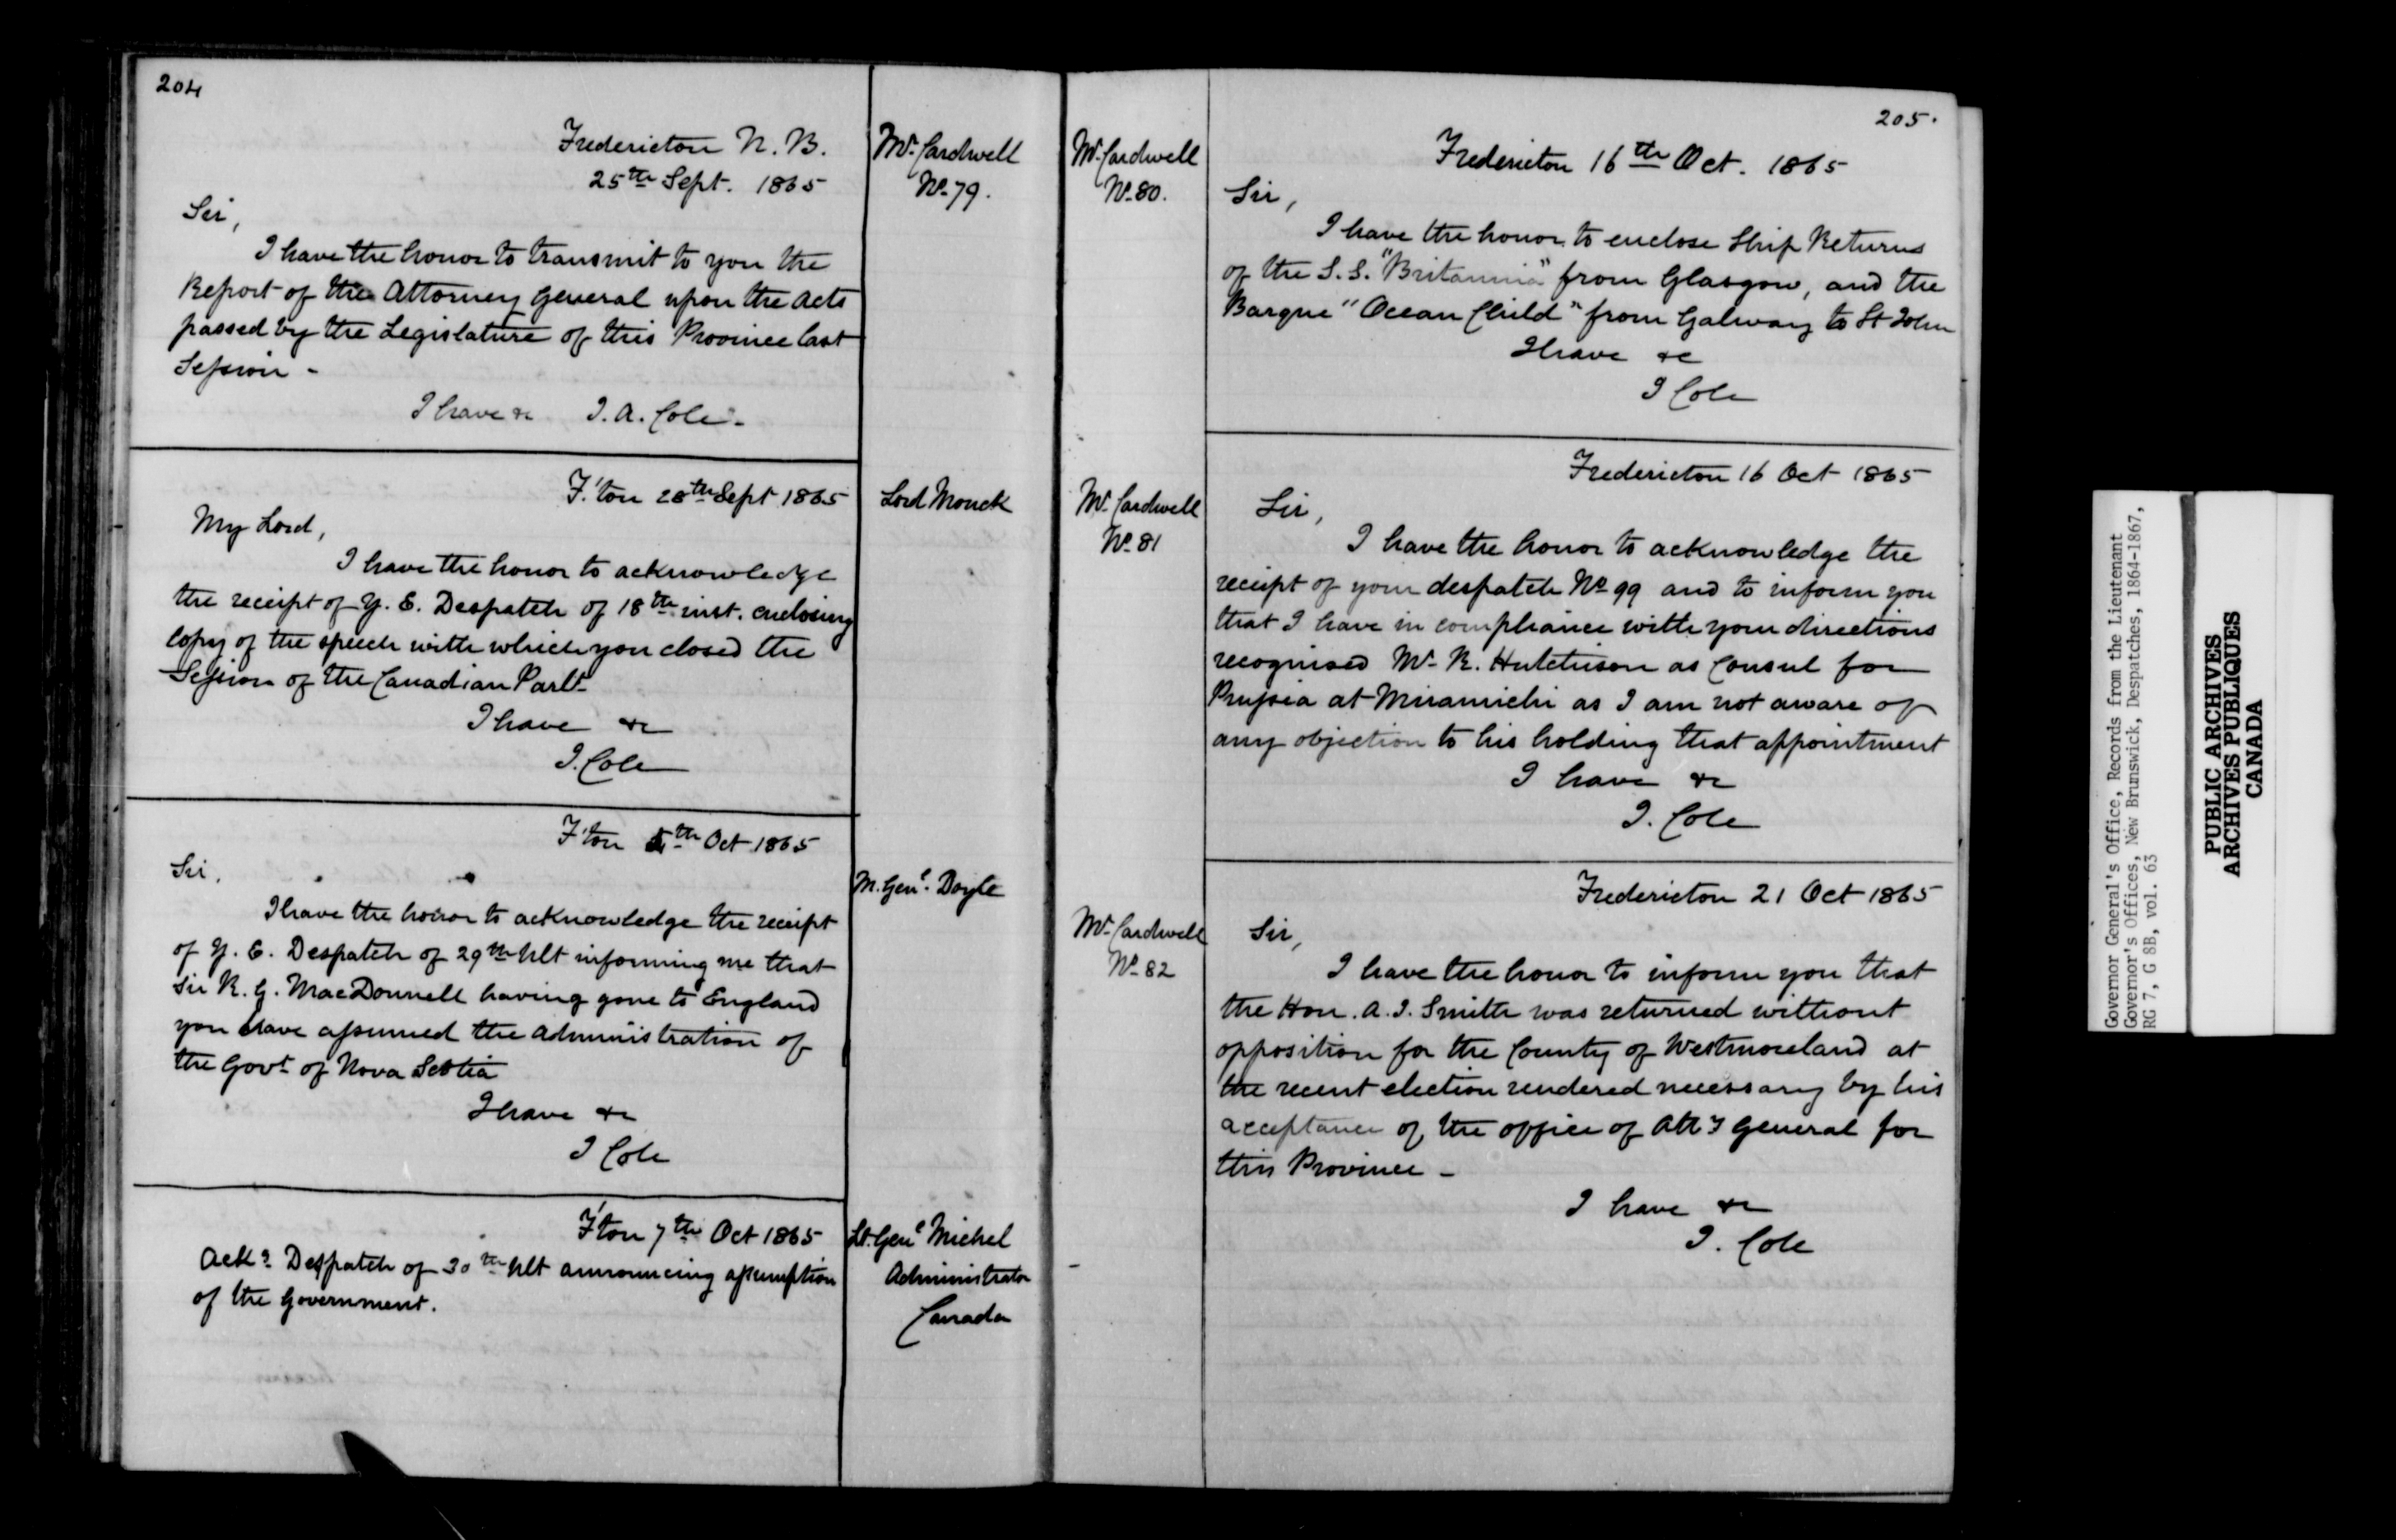 204
Fredericton N. B.
25th Sept. 1865
Mr. Cardwell
No. 79.
Sir,
I have the honor to transmit to you the
Report of the Attorney General upon the Acts
passed by the Legislature of this Province last
Session -
I have &c J. A. Cole.
F'ton 28th Sept 1865
Lord Monck
My Lord,
I have the honor to acknowledge
the receipt of Y. E. Despatch of 18th inst. enclosing
Copy of the speech with which you closed the
Session of the Canadian Parlt.
I have &c
J. Cole
F'ton 5th Oct 1865
M. Genl. Doyle
Sir.
I have the honor to acknowledge the receipt
of Y. E. Despatch of 29th Ult informing me that
Sir R. G. MacDonnell having gone to England
you have assumed the Administration of
the Govt of Nova Scotia
I have &c
J Cole
F'ton 7th Oct 1865
Lt. Genl Michel
Administrator
Canada
Ackd Despatch of 30th Ult announcing assumption
of the Government.
205.
Mr. Cardwell
No. 80.
Fredericton 16th Oct. 1865
Sir,
I have the honor to enclose Ship Returns
of the S. S. "Britannia" from Glasgow, and the
Barque "Ocean Child" from Galway to St John
I have &c
J Cole
Mr. Cardwell
No. 81
Fredericton 16 Oct 1865
Sir,
I have the honor to acknowledge the
receipt of your despatch No 99 and to inform you
that I have in compliance with your directions
recognised Mr. R. Hutchison as Consul for
Prussia at Miramichi as I am not aware of
any objection to his holding that appointment
I have &c
J. Cole
Mr. Cardwell
No. 82
Fredericton 21 Oct 1865
Sir,
I have the honor to inform you that
the Hon. A. J. Smith was returned without
opposition for the County of Westmoreland at
the recent election rendered necessary by his
acceptance of the office of Atty General for
this Province -
I have &c
J. Cole
Governor General's Office, Records from the Lieutenant
Governor's Offices, New Brunswick, Despatches, 1864-1867,
RG 7, G 8B, vol. 63
PUBLIC ARCHIVES
ARCHIVES PUBLIQUES
CANADA